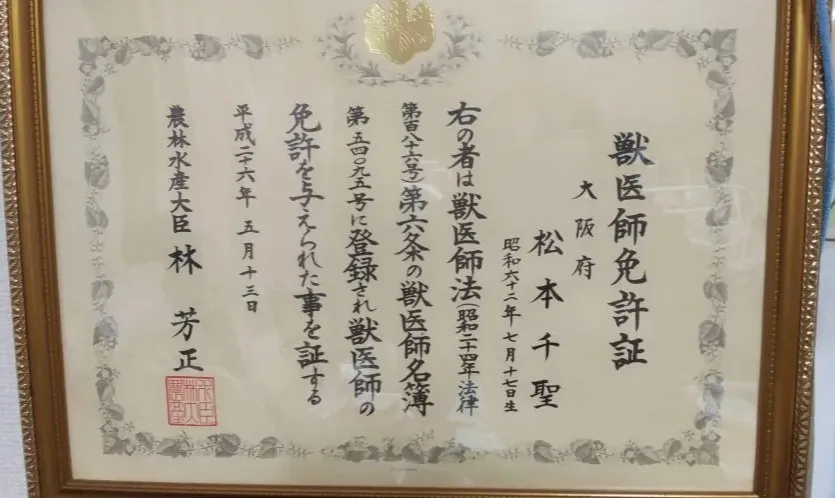 獣医師免許証
大阪府
松本千聖
昭和六十二年七月十七日生
右の者は獣医師法(昭和二十四年法律
第百八十六号)第六条の獣医師名簿
第五四〇九五号に登録され獣医師の
免許を与えられた事を証する
平成二十六年 五月十三日
農林水産大臣 林 芳正